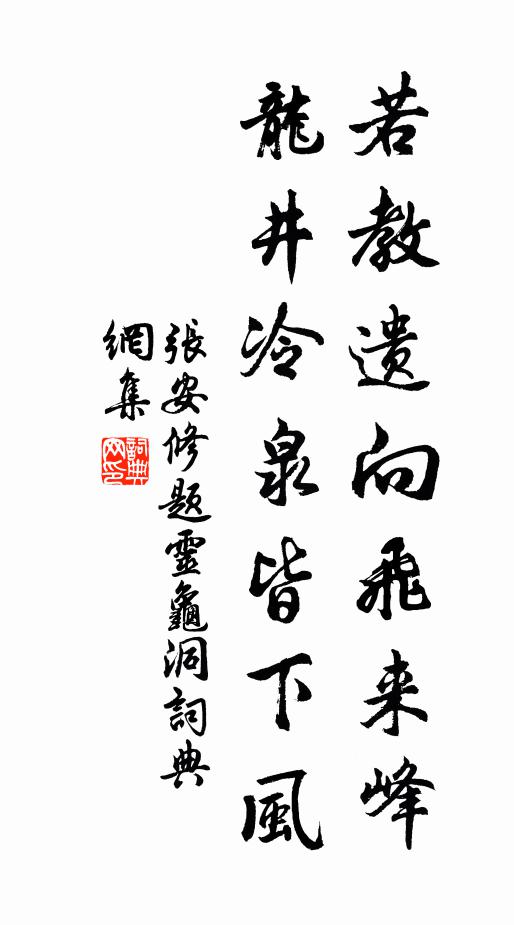 若教遗向飛来峰
龍井冷泉皆下風
張安修題靈龜洞詞典
網集
詞典网印